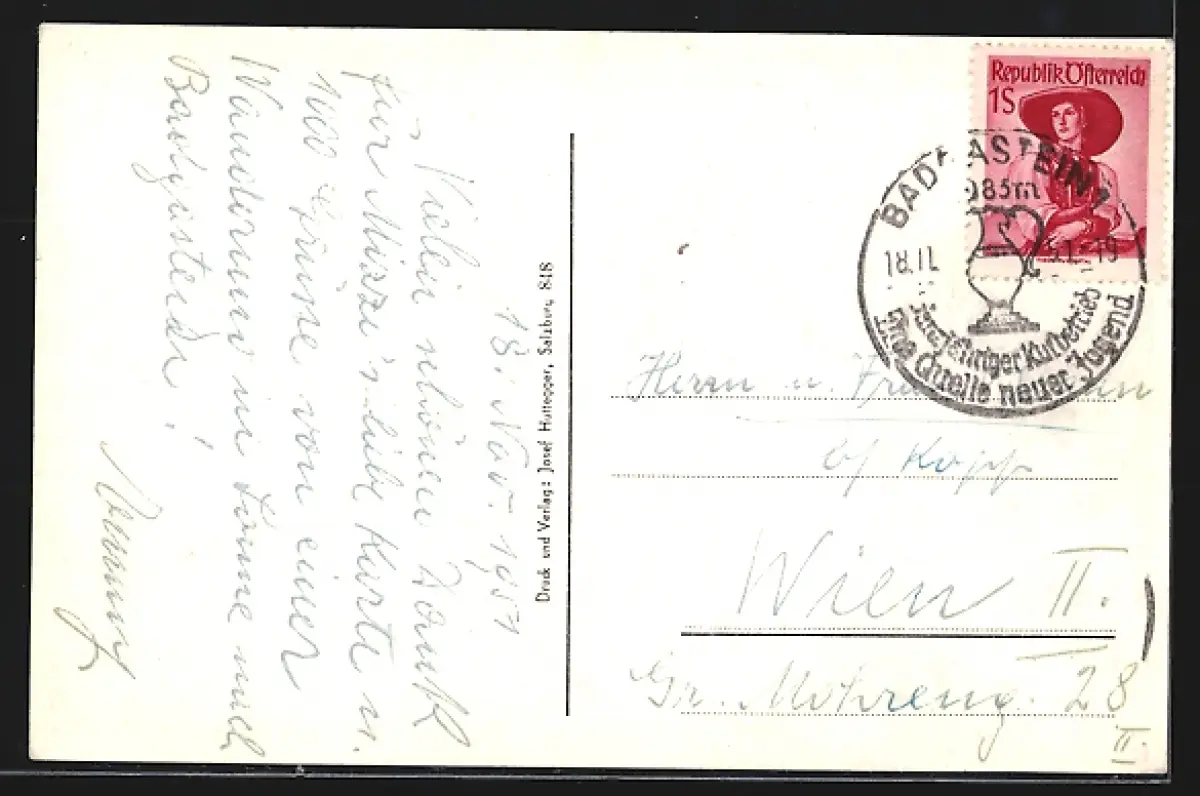 18. Nov. 1951
Vielen schönen Dank
für Mizzi's liebe Karte u.
100 Grüsse von einer
Wanderung im Sonne nach
Badgastein!
Druck und Verlag: Josef Huttegger, Salzburg, 848
Republik Österreich
1S
BADGASTEIN 1
1085m
18.11. 51-19
Ganzjähriger Kurbetrieb
Die Quelle neuer Jugend
Herrn u.
b/ Kopp
Wien II.
Gr. Mohreng. 28
II.